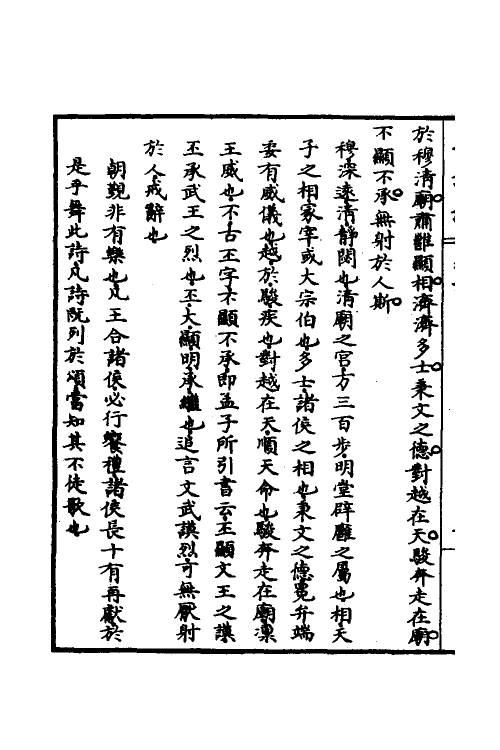 於穆清廟肅雝顯相濟濟多士秉文之德對越在天駿奔走在廟
不顯不承無射於人斯
穆深遠清靜閟也清廟之宫方三百步明堂辟廱之屬也相天
子之相冢宰或大宗伯也多士諸侯之相也秉文之德冕弁端
委有威儀也越於駿疾也對越在天順天命也駿奔走在廟凛
王威也不古丕字不顯不承即孟子所引書云丕顯文王之謨
丕承武王之烈也丕大顯明承繼也追言文武謨烈可無厭射
於人戒辭也
朝覲非有樂也凡王合諸侯必行饗禮諸侯長十有再獻於
是乎舞此詩凡詩既列於頌當知其不徒歌也